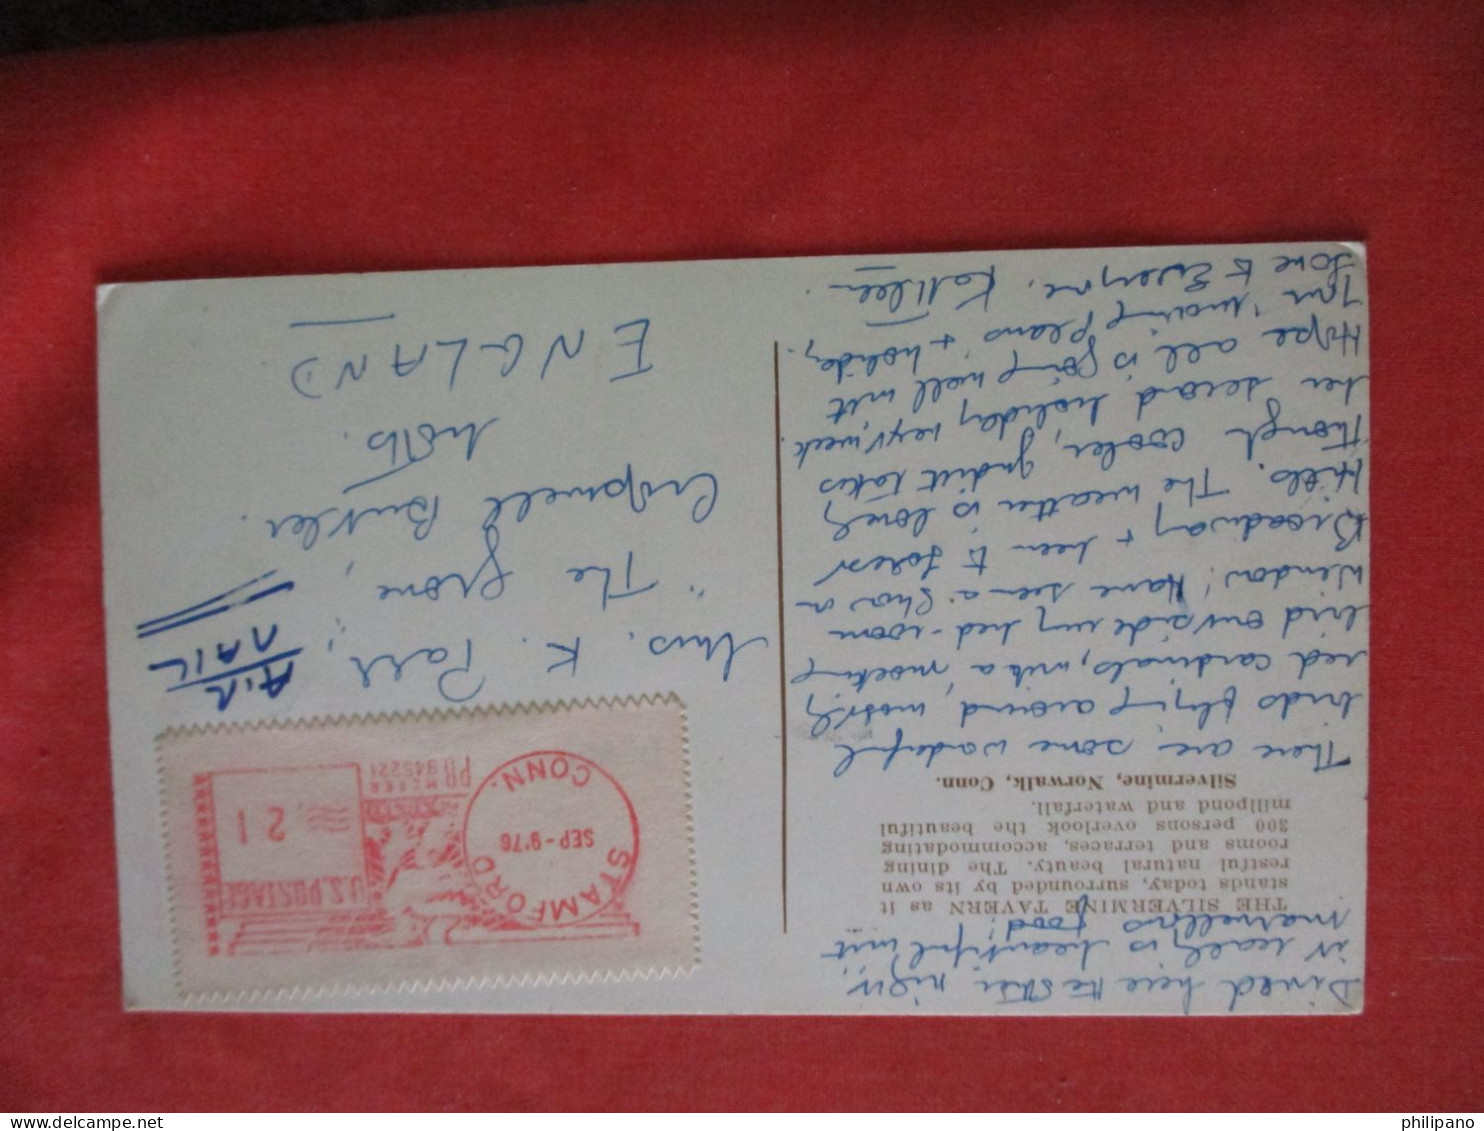 Dined here the other night,
it really is beautiful wit
marvellous food!
THE SILVERMINE TAVERN as it
stands today, surrounded by its own
restful natural beauty. The dining
rooms and terraces, accommodating
300 persons overlook the beautiful
millpond and waterfall.
Silvermine, Norwalk, Conn.
There are some wonderful
birds flying around, mostly
red cardinals, with a mocking
bird outside my bed-room
window! Have seen a show on
Broadway & been to Forest
Hills. The weather is lovely
though cooler, Judith takes
her second holiday next week
Hope all is going well wit
your moving plans & holiday.
Love to Everyone. Kathleen
STAMFORD
CONN.
SEP-9'76
PB METER
945221
U.S. POSTAGE
.21
AIR
MAIL
Mrs. K. Parr,
"The Grove,
Cropwell Butler.
Notts.
ENGLAND
philipano